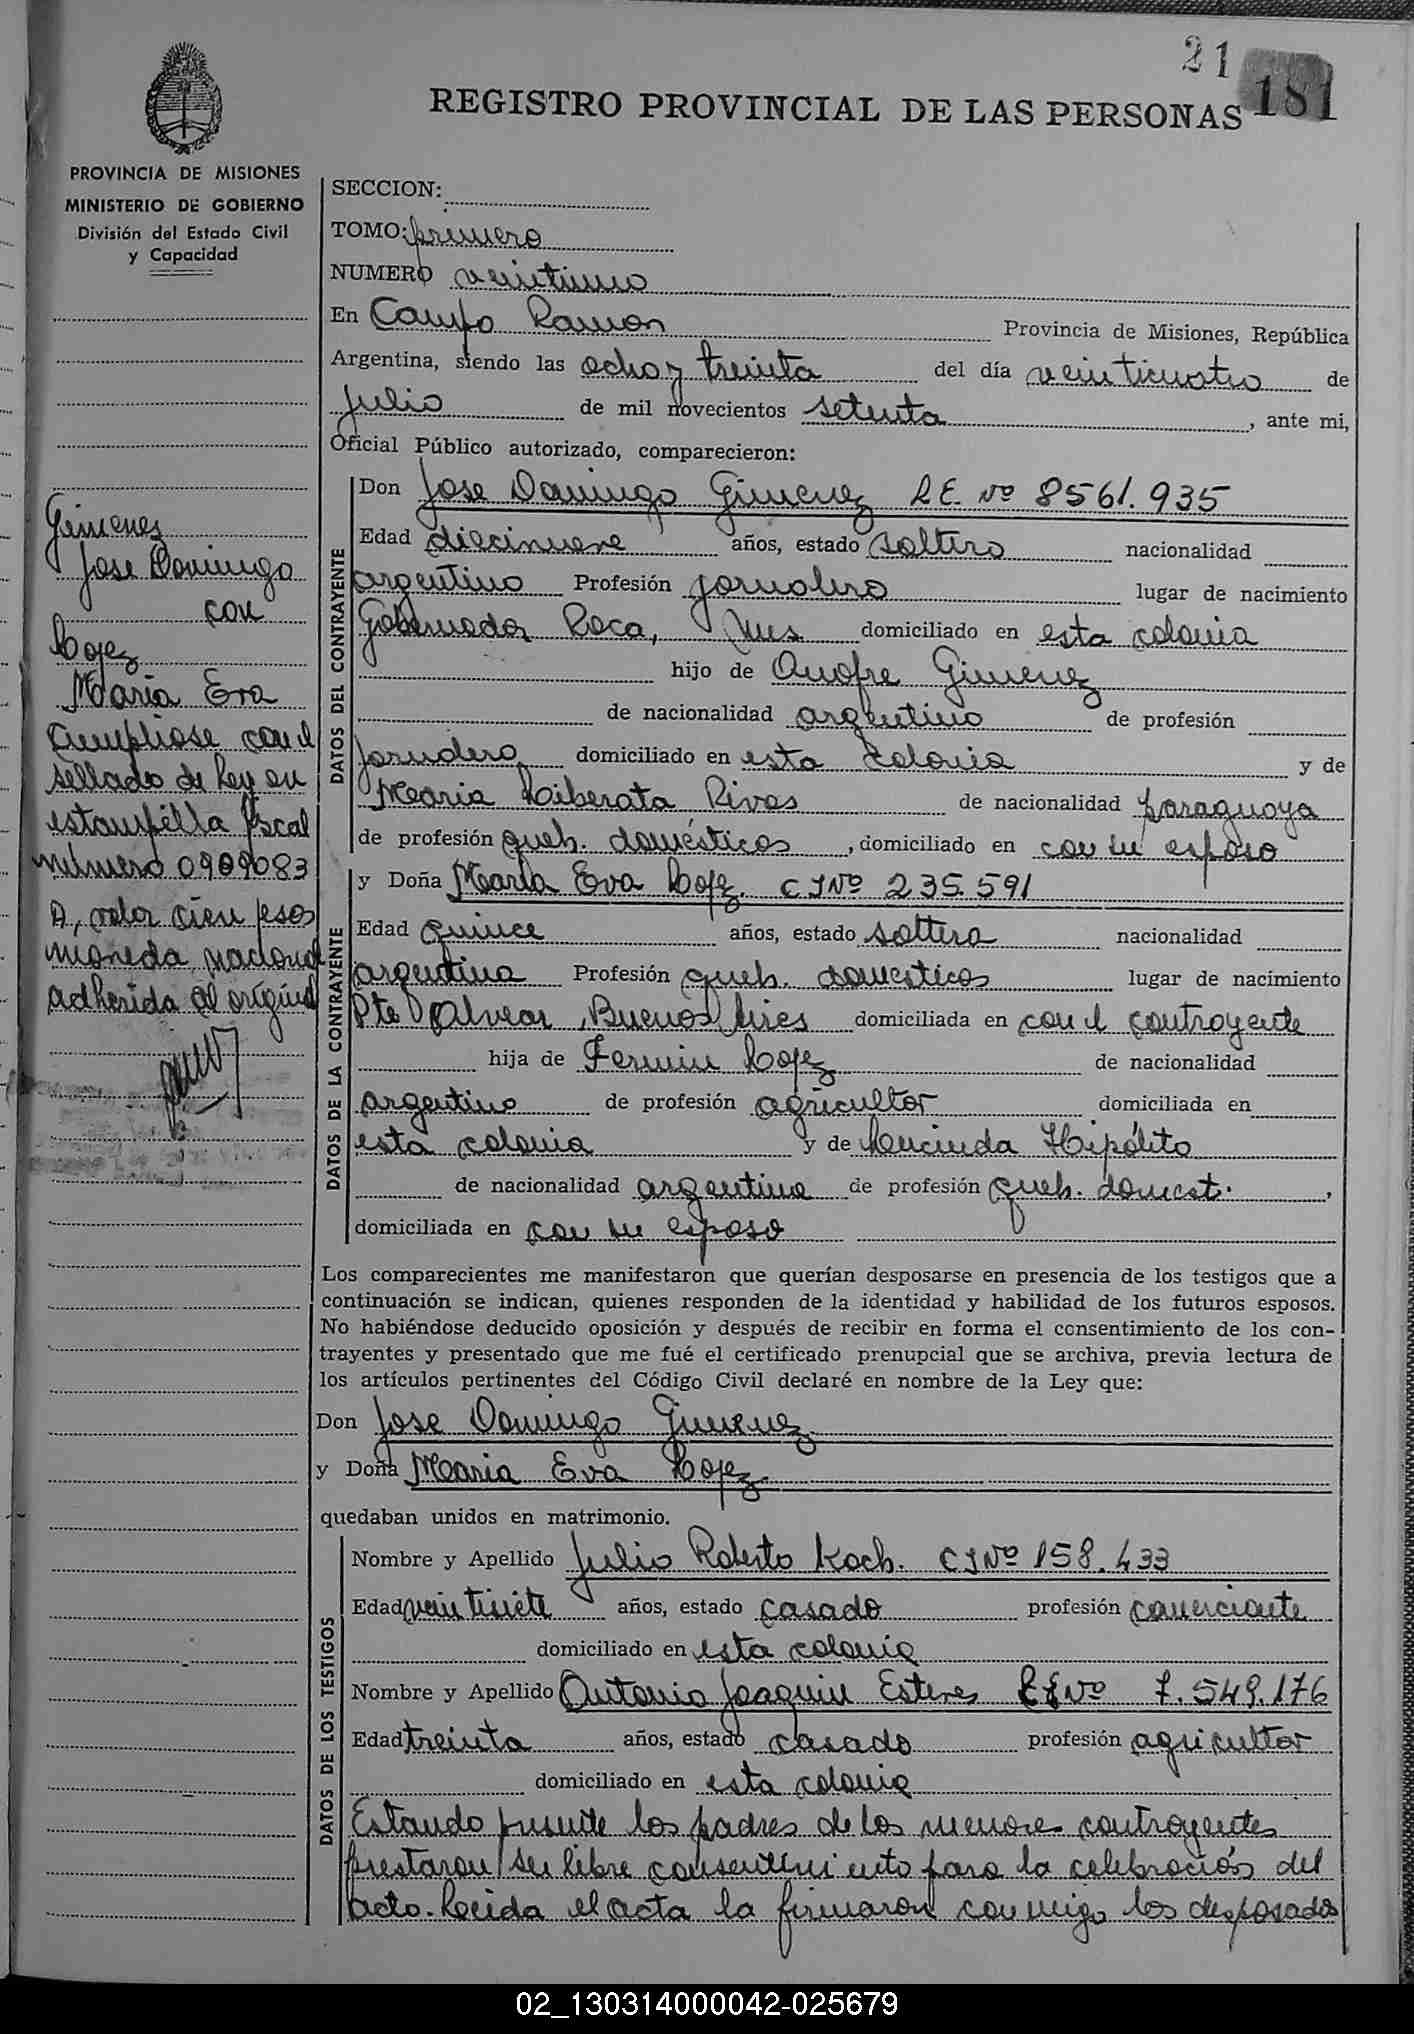 21
181
REGISTRO PROVINCIAL DE LAS PERSONAS
PROVINCIA DE MISIONES
MINISTERIO DE GOBIERNO
División del Estado Civil
y Capacidad
Gimenez
Jose Domingo
con
Lopez
Maria Eva
Cumpliose con el
sellado de Ley en
estampilla fiscal
número 0909083
A, valor cien pesos
moneda nacional
adherida al original
SECCION:
TOMO: primero
NUMERO veintiuno
En Campo Ramon Provincia de Misiones, República
Argentina, siendo las ocho y treinta del día veinticuatro de
Julio de mil novecientos setenta, ante mi,
Oficial Público autorizado, comparecieron:
DATOS DEL CONTRAYENTE
Don Jose Domingo Gimenez L.E. Nº 8561.935
Edad diecinueve años, estado soltero nacionalidad
argentino Profesión jornalero lugar de nacimiento
Gobernador Roca, Mnes domiciliado en esta colonia
hijo de Onofre Gimenez
de nacionalidad argentino de profesión
jornalero domiciliado en esta colonia y de
Maria Liberata Rivas de nacionalidad paraguaya
de profesión queh. domésticos, domiciliado en con su esposo
DATOS DE LA CONTRAYENTE
y Doña Maria Eva Lopez. C I Nº 235.591
Edad quince años, estado soltera nacionalidad
argentina Profesión queh. domesticos lugar de nacimiento
Pte Alvear, Buenos Aires domiciliada en con el contrayente
hija de Fermin Lopez de nacionalidad
argentino de profesión agricultor domiciliada en
esta colonia y de Lucinda Hipólito
de nacionalidad argentina de profesión queh. domest.,
domiciliada en con su esposo
Los comparecientes me manifestaron que querían desposarse en presencia de los testigos que a
continuación se indican, quienes responden de la identidad y habilidad de los futuros esposos.
No habiéndose deducido oposición y después de recibir en forma el consentimiento de los con-
trayentes y presentado que me fué el certificado prenupcial que se archiva, previa lectura de
los artículos pertinentes del Código Civil declaré en nombre de la Ley que:
Don Jose Domingo Gimenez
y Doña Maria Eva Lopez
quedaban unidos en matrimonio.
DATOS DE LOS TESTIGOS
Nombre y Apellido Julio Roberto Koch. C I Nº 158.433
Edad veintisiete años, estado casado profesión comerciante
domiciliado en esta colonia
Nombre y Apellido Antonio Joaquin Esteves Nº 7.549.176
Edad treinta años, estado casado profesión agricultor
domiciliado en esta colonia
Estando presente los padres de los menores contrayentes
prestaron su libre consentimiento para la celebración del
acto. Leida el acta la firmaron conmigo los desposados
02_130314000042-025679